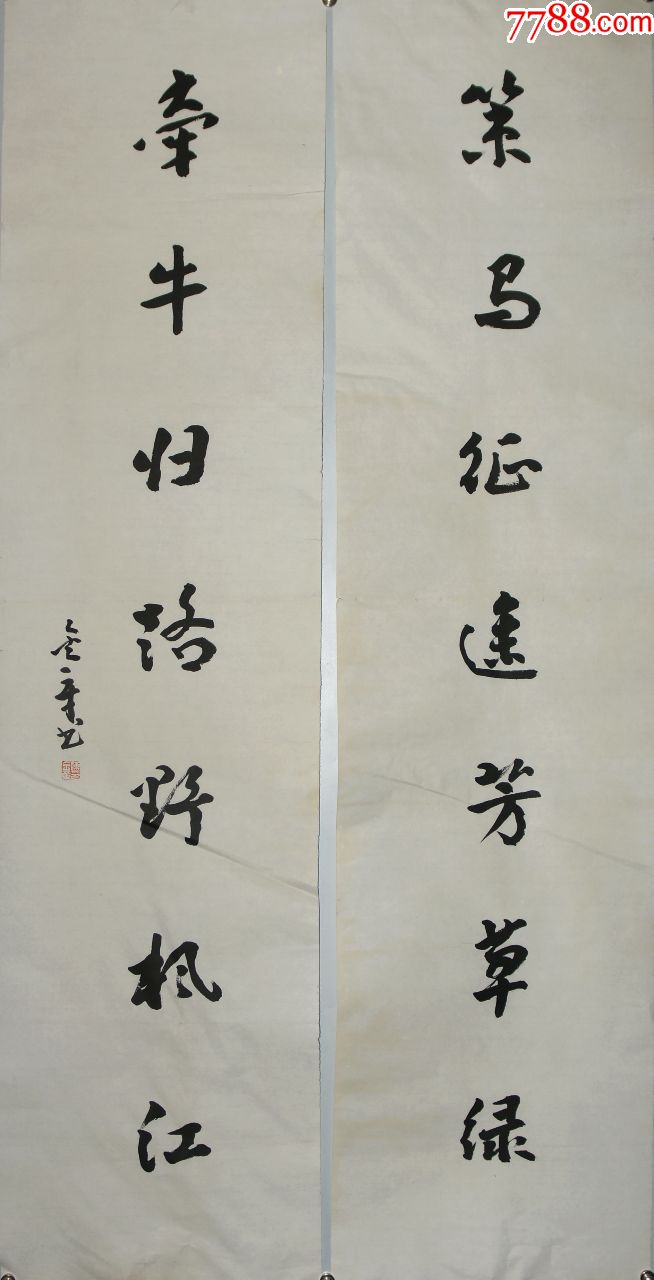 7788.com
策马征途芳草绿
牵牛归路野枫江